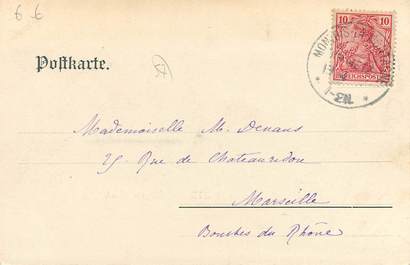 6 6
10 10
REICHSPOST
1-2N.
Postkarte.
Mademoiselle M. Denans
25 Rue de Chateauredon
Marseille
Bouches du Rhône